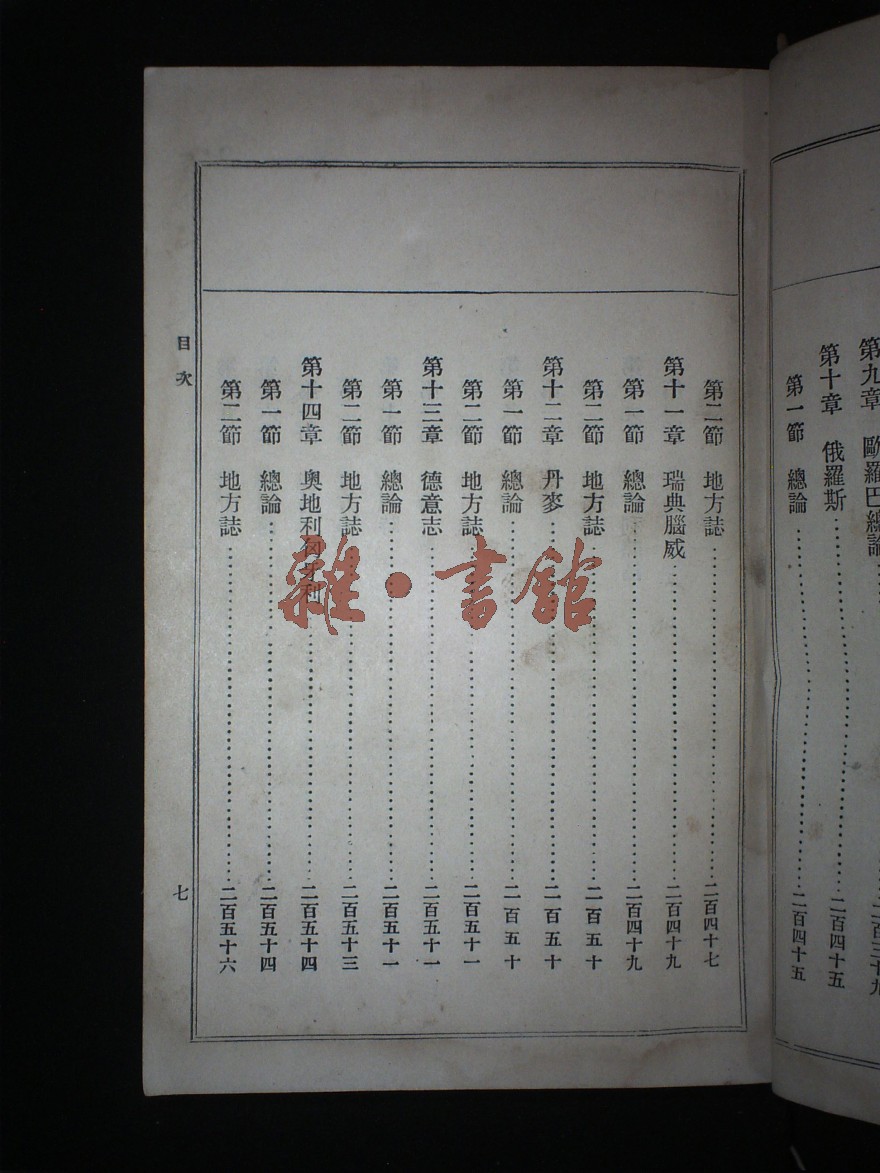 第九章 歐羅巴總論……二百三十九
第十章 俄羅斯……二百四十五
第一節 總論……二百四十五
第二節 地方誌……二百四十七
第十一章 瑞典腦威……二百四十九
第一節 總論……二百四十九
第二節 地方誌……二百五十
第十二章 丹麥……二百五十
第一節 總論……二百五十
第二節 地方誌……二百五十一
第十三章 德意志……二百五十一
第一節 總論……二百五十一
第二節 地方誌……二百五十三
第十四章 奧地利匈牙利……二百五十四
第一節 總論……二百五十四
第二節 地方誌……二百五十六
目次
七
雜·書館